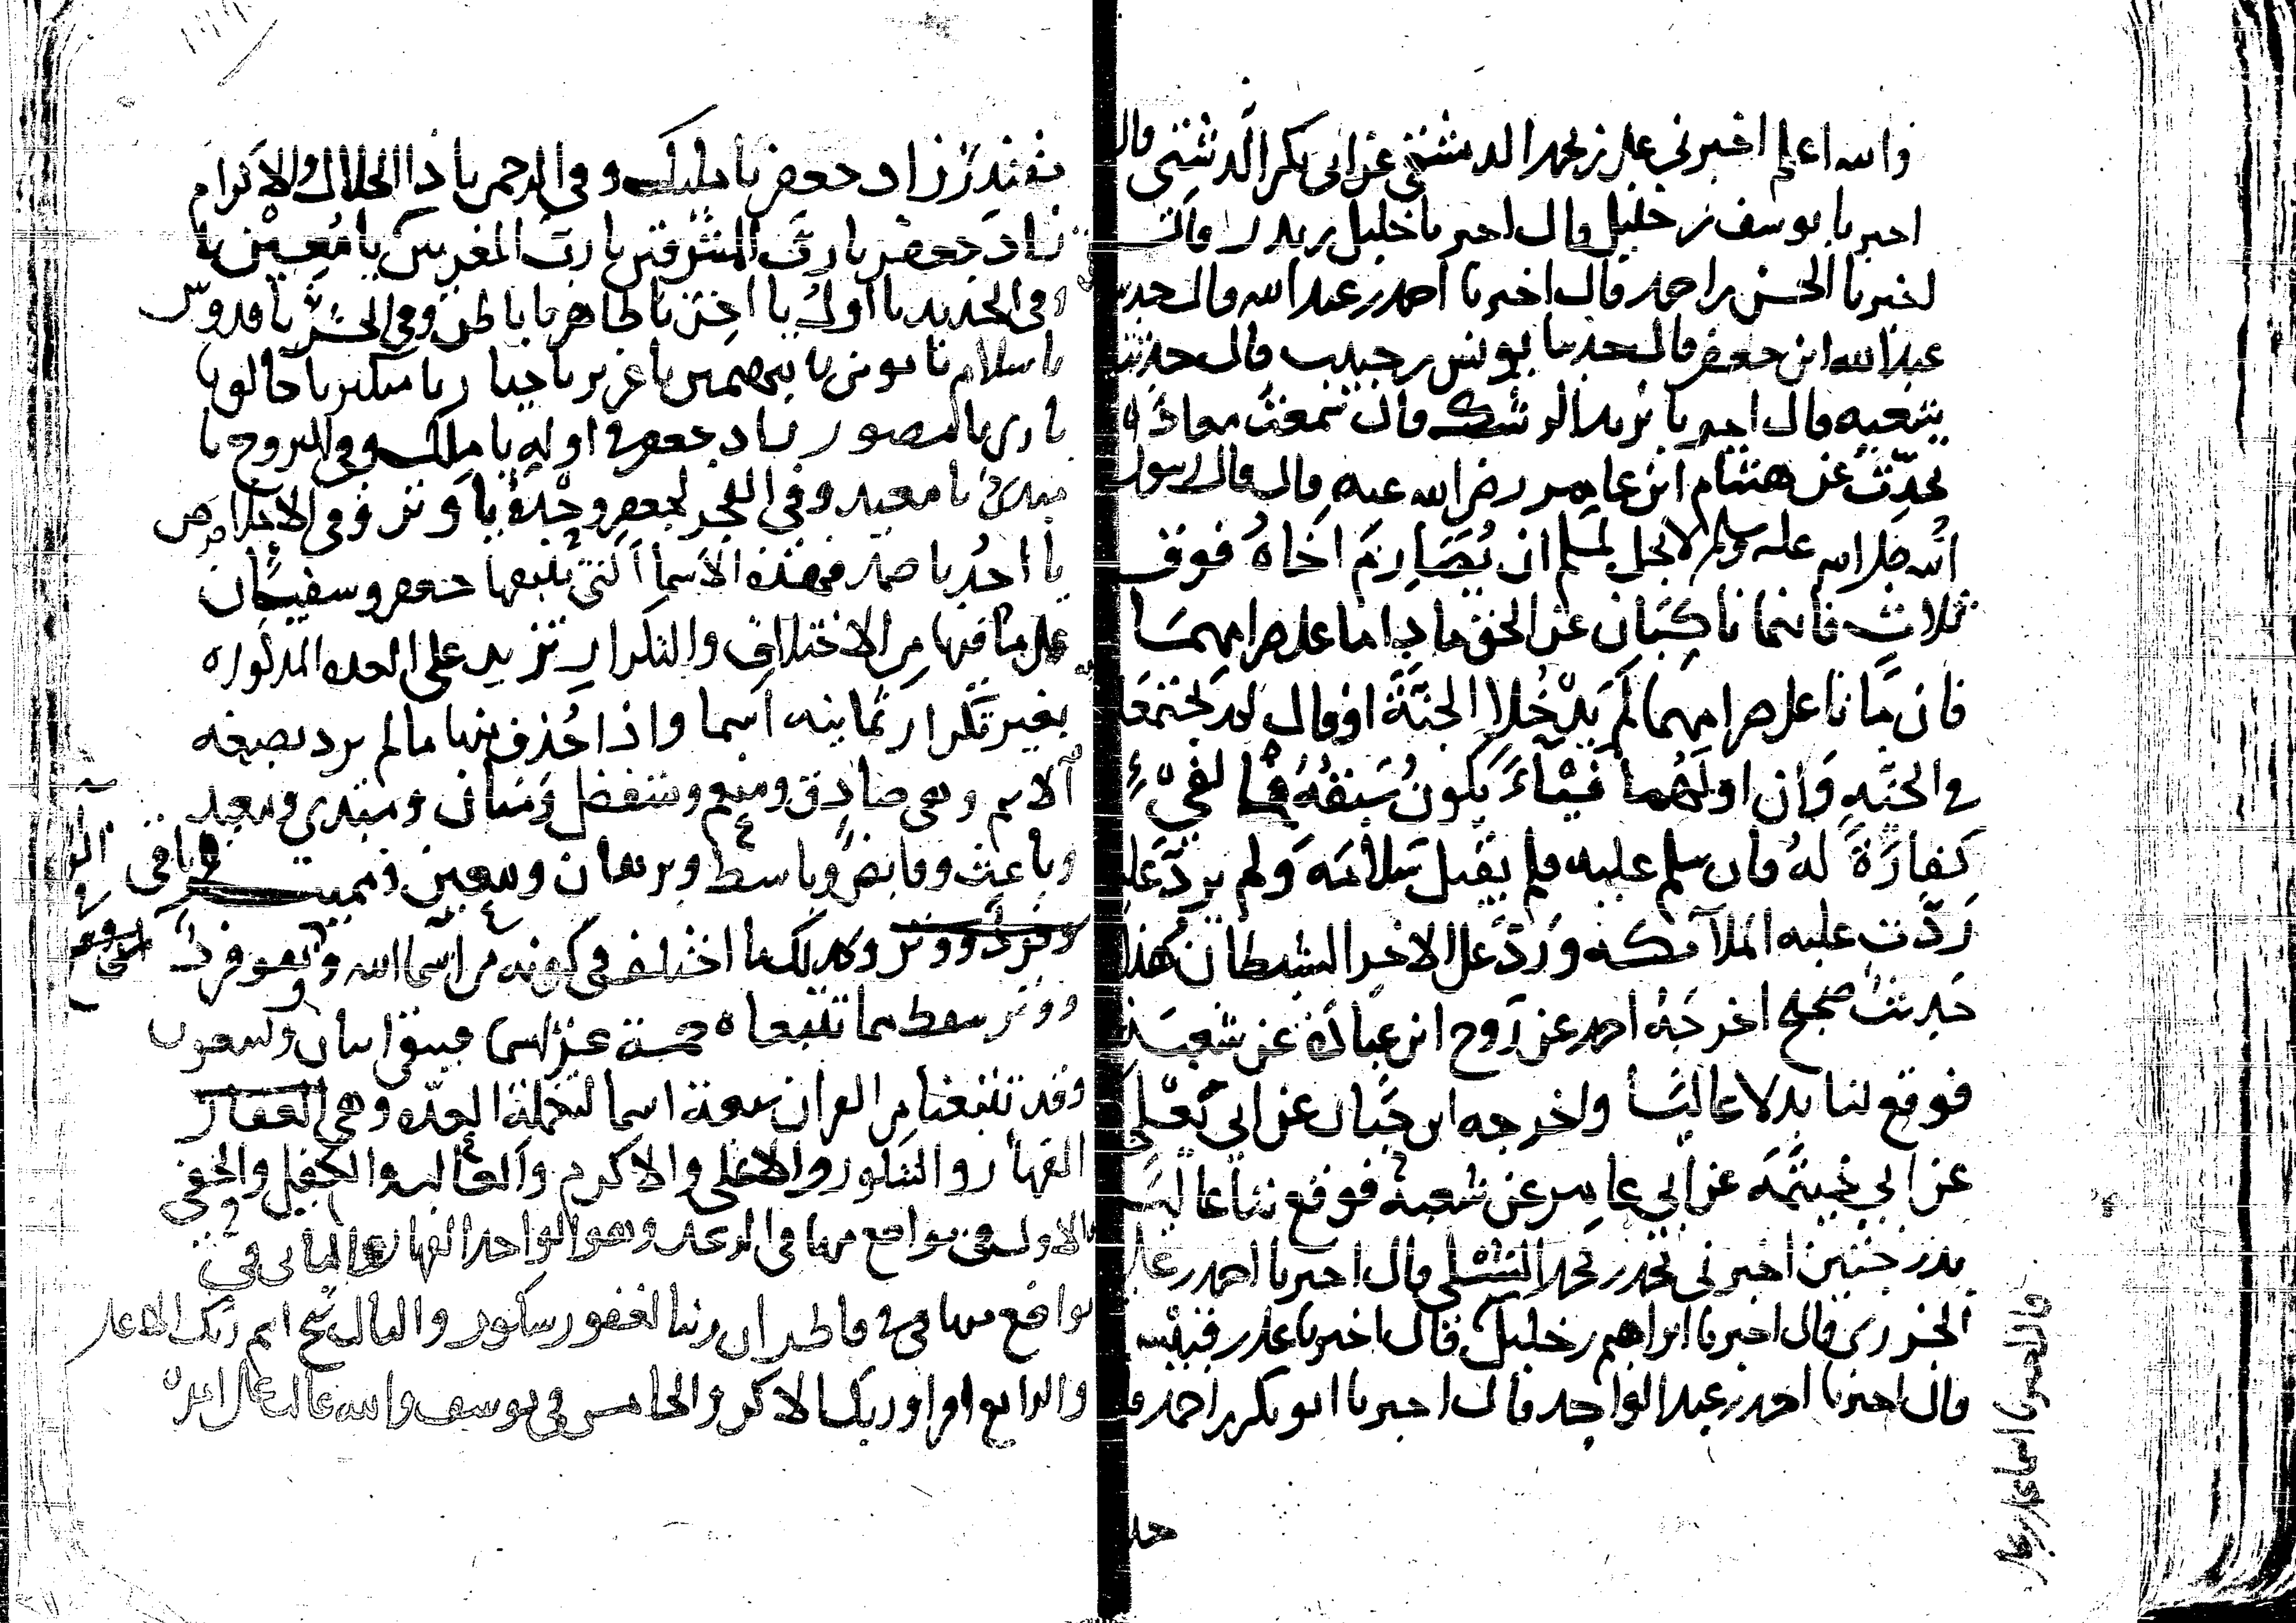 والله اعلم اخبرني علي بن محمد الدمشقي عن ابي بكر الدشتي قال
اخبرنا يوسف بن خليل قال اخبرنا خليل بن بدر قال
اخبرنا الحسن بن احمد قال اخبرنا احمد بن عبد الله قال حدثنا
عبد الله ابن جعفر قال حدثنا يونس بن حبيب قال حدثنا
شعبة قال اخبرنا يزيد الرشك قال سمعت معاذة
تحدث عن هشام ابن عامر رضي الله عنه قال قال رسول
الله صلى الله عليه وسلم لا يحل لمسلم ان يصارم اخاه فوق
ثلاث فانهما ناكبان عن الحق ما داما على صرامهما
فان ماتا على صرامهما لم يدخلا الجنة او قال لم يجتمعا
في الجنة وان اولهما فيئا يكون سبقه بالفيء
كفارة له فان سلم عليه فلم يقبل سلامه ولم يرد عليه
ردت عليه الملائكة ورد على الاخر الشيطان هذا
حديث صحيح اخرجه احمد عن روح ابن عبادة عن شعبة
فوقع لنا بدلا عاليا واخرجه ابن حبان عن ابي يعلى
عن ابي خيثمة عن ابي عامر عن شعبة فوقع لنا عاليا
بدرجتين اخبرني محمد بن محمد قال اخبرنا احمد بن علي
الجزري قال اخبرنا ابراهيم بن خليل قال اخبرنا علي بن
قال اخبرنا احمد بن عبد الواحد قال اخبرنا ابو بكر بن احمد
مقتدر زاد جعفر يا مليك وفي الرحمن يا ذا الجلال والاكرام
زاد جعفر يا رب المشرقين يا رب المغربين يا معين يا
وفي الحديد يا اول يا اخر يا ظاهر يا باطن وفي الحشر يا قدوس
يا سلام يا مومن يا مهيمن يا عزيز يا جبار يا متكبر يا خالق يا
باري يا مصور زاد جعفر في اوله يا ملك وفي البروج يا
مبدئ يا معيد وفي الفجر لجعفر وحده يا وتر وفي الاخلاص
يا احد يا صمد فهذه الاسما التي تتبعها جعفر وسفيان
على ما فيها من الاختلاف والتكرار تزيد على العدة المذكورة
بغير تكرار ثمانية اسما واذا حذف منها ما لم يرد بصيغة
الاسم وهي صادق ومنعم ومتفضل ومنان ومبدئ ومعيد
وباعث وقابض وباسط وبرهان ومعين ومميت وباقي
وفرد ووتر وكذلك ما اختلف في كونه من اسما الله وهو فرد
ووتر سقط مما تتبعاه خمسة عشر اسما فيبقى اثنان وتسعون
وقد تتبعنا من القران سبعة اسما لتكملة العدة وهي الغفار
القهار والشكور والاعلى والاكرم والغالب والكفيل والحفي
فالاول في مواضع منها في الرعد وهو الواحد القهار والثاني في
مواضع منها في فاطر ان ربنا لغفور شكور والثالث سبح اسم ربك الاعلى
والرابع اقرا وربك الاكرم والخامس في يوسف والله غالب على امره